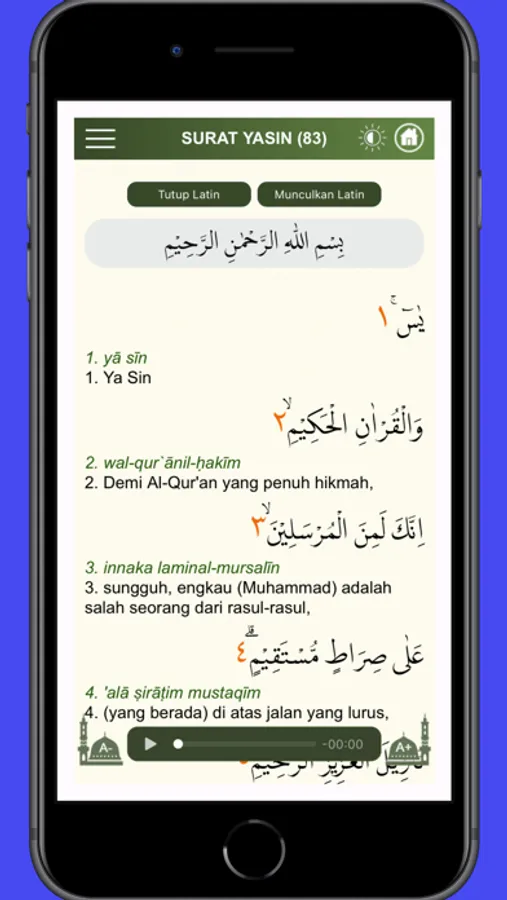 SURAT YASIN (83)
Tutup Latin Munculkan Latin
بِسْمِ اللّٰهِ الرَّحْمٰنِ الرَّحِيْمِ
يٰسۤ ۚ ١
1. yā sīn
1. Ya Sin
وَالْقُرْاٰنِ الْحَكِيْمِۙ ٢
2. wal-qur`ānil-ḥakīm
2. Demi Al-Qur'an yang penuh hikmah,
اِنَّكَ لَمِنَ الْمُرْسَلِيْنَۙ ٣
3. innaka laminal-mursalīn
3. sungguh, engkau (Muhammad) adalah
salah seorang dari rasul-rasul,
عَلٰى صِرَاطٍ مُّسْتَقِيْمٍۗ ٤
4. 'alā ṣirāṭim mustaqīm
4. (yang berada) di atas jalan yang lurus,
A- -00:00 A+
الْعَزِيْزِ الرَّحِيْمِ